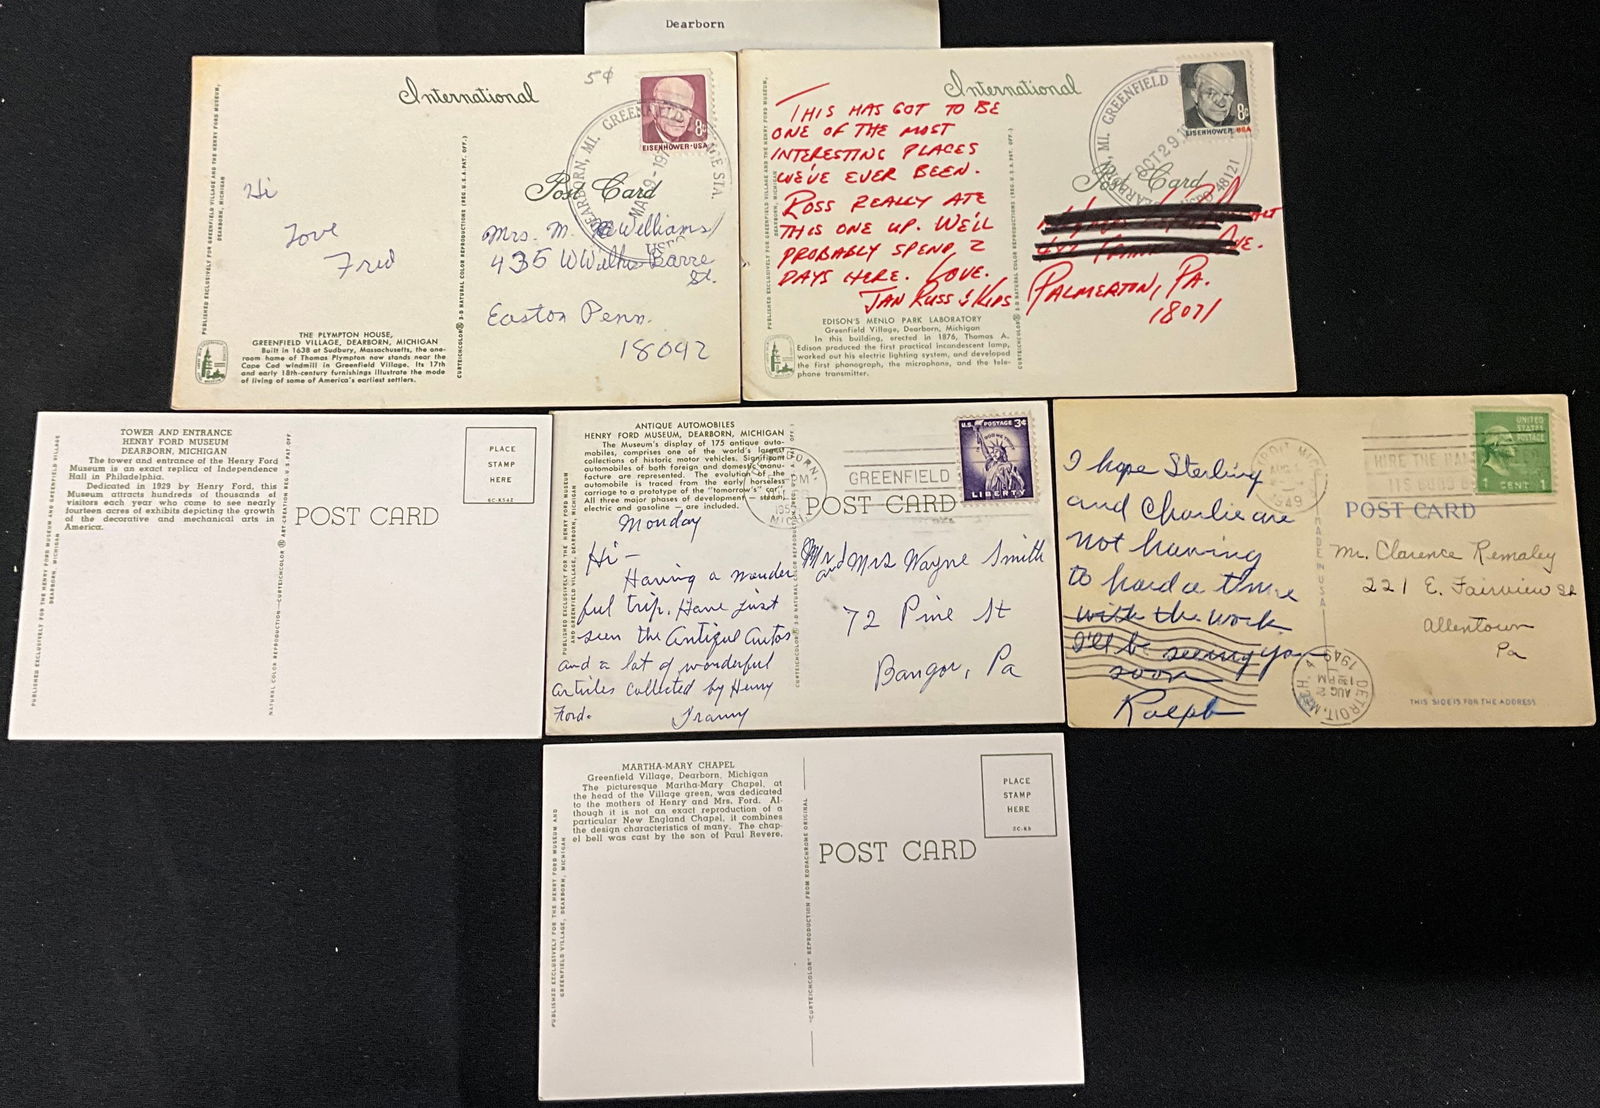 Dearborn
PUBLISHED EXCLUSIVELY FOR GREENFIELD VILLAGE AND THE HENRY FORD MUSEUM,
DEARBORN, MICHIGAN
International
5¢
8¢
EISENHOWER·USA
DEARBORN, MI. GREENFIELD
STA.
Post Card
Hi
Love
Fred
Mrs. M. McWilliams
435 W Wilkes-Barre
St.
Easton Penn.
18042
THE PLYMPTON HOUSE,
GREENFIELD VILLAGE, DEARBORN, MICHIGAN
Built in 1638 at Sudbury, Massachusetts, the one-
room home of Thomas Plympton now stands near the
Cape Cod windmill in Greenfield Village. Its 17th
and early 18th-century furnishings illustrate the mode
of living of some of America's earliest settlers.
CURTEICHCOLOR® 3-D NATURAL COLOR REPRODUCTIONS (REG. U.S.A. PAT. OFF.)
International
8¢
EISENHOWER·USA
DEARBORN, MI. GREENFIELD
OCT 29
48121
Post Card
THIS HAS GOT TO BE
ONE OF THE MOST
INTERESTING PLACES
WE'VE EVER BEEN.
ROSS REALLY ATE
THIS ONE UP. WE'LL
PROBABLY SPEND 2
DAYS HERE. LOVE.
JAN RUSS & KIDS
AVE.
PALMERTON, PA.
18071
EDISON'S MENLO PARK LABORATORY
Greenfield Village, Dearborn, Michigan
In this building, erected in 1876, Thomas A.
Edison produced the first practical incandescent lamp,
worked out his electric lighting system, and developed
the first phonograph, the microphone, and the tele-
phone transmitter.
CURTEICHCOLOR® 3-D NATURAL COLOR REPRODUCTIONS (REG. U.S.A. PAT. OFF.)
TOWER AND ENTRANCE
HENRY FORD MUSEUM
DEARBORN, MICHIGAN
The tower and entrance of the Henry Ford
Museum is an exact replica of Independence
Hall in Philadelphia.
Dedicated in 1929 by Henry Ford, this
Museum attracts hundreds of thousands of
visitors each year who come to see nearly
fourteen acres of exhibits depicting the growth
of the decorative and mechanical arts in
America.
PUBLISHED EXCLUSIVELY FOR THE HENRY FORD MUSEUM AND GREENFIELD VILLAGE
DEARBORN, MICHIGAN
NATURAL COLOR REPRODUCTION—CURTEICHCOLOR® ART-CREATION REG. U.S. PAT. OFF.
PLACE
STAMP
HERE
6C-K542
POST CARD
ANTIQUE AUTOMOBILES
HENRY FORD MUSEUM, DEARBORN, MICHIGAN
The Museum's display of 175 antique auto-
mobiles, comprises one of the world's largest
collections of historic motor vehicles. Significant
automobiles of both foreign and domestic manu-
facture are represented. The evolution of the
automobile is traced from the early horseless
carriage to a prototype of the "tomorrow's" car.
All three major phases of development — steam,
electric and gasoline — are included.
PUBLISHED EXCLUSIVELY FOR THE HENRY FORD MUSEUM
AND GREENFIELD VILLAGE, DEARBORN, MICHIGAN
GREENFIELD
MICH.
U.S. POSTAGE 3¢
LIBERTY
POST CARD
Monday
Hi —
Having a wonder
ful trip. Have just
seen the Antique Autos
and a lot of wonderful
articles collected by Henry
Ford.
Franny
Mr and Mrs Wayne Smith
72 Pine St
Bangor, Pa
UNITED
STATES
POSTAGE
1 CENT 1
1949
POST CARD
MADE IN U.S.A.
I hope Sterling
and Charlie are
not having
to hard a time
with the work
I'll be seeing you
soon
Ralph
Mr. Clarence Remaley
221 E. Fairview St
Allentown
Pa
DETROIT, MICH. 4
AUG 2
1949
THIS SIDE IS FOR THE ADDRESS
MARTHA-MARY CHAPEL
Greenfield Village, Dearborn, Michigan
The picturesque Martha-Mary Chapel, at
the head of the Village green, was dedicated
to the mothers of Henry and Mrs. Ford. Al-
though it is not an exact reproduction of a
particular New England Chapel, it combines
the design characteristics of many. The chap-
el bell was cast by the son of Paul Revere.
PUBLISHED EXCLUSIVELY FOR THE HENRY FORD MUSEUM AND
GREENFIELD VILLAGE, DEARBORN, MICHIGAN
"CURTEICHCOLOR" REPRODUCTION FROM KODACHROME ORIGINAL
PLACE
STAMP
HERE
POST CARD